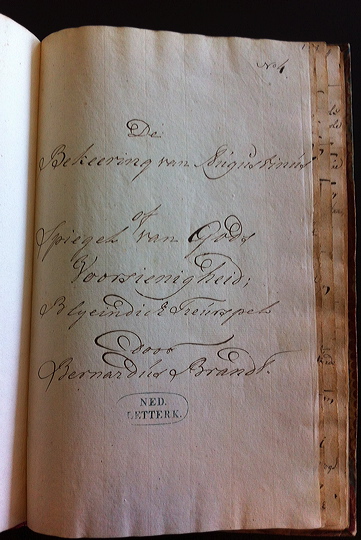 No 4
De
Bekeering van Augustinus
of
Spiegel van Gods
Voorsienigheid;
Blyeindich Treurspel
door
Bernardus Brandt.
NED.
LETTERK.